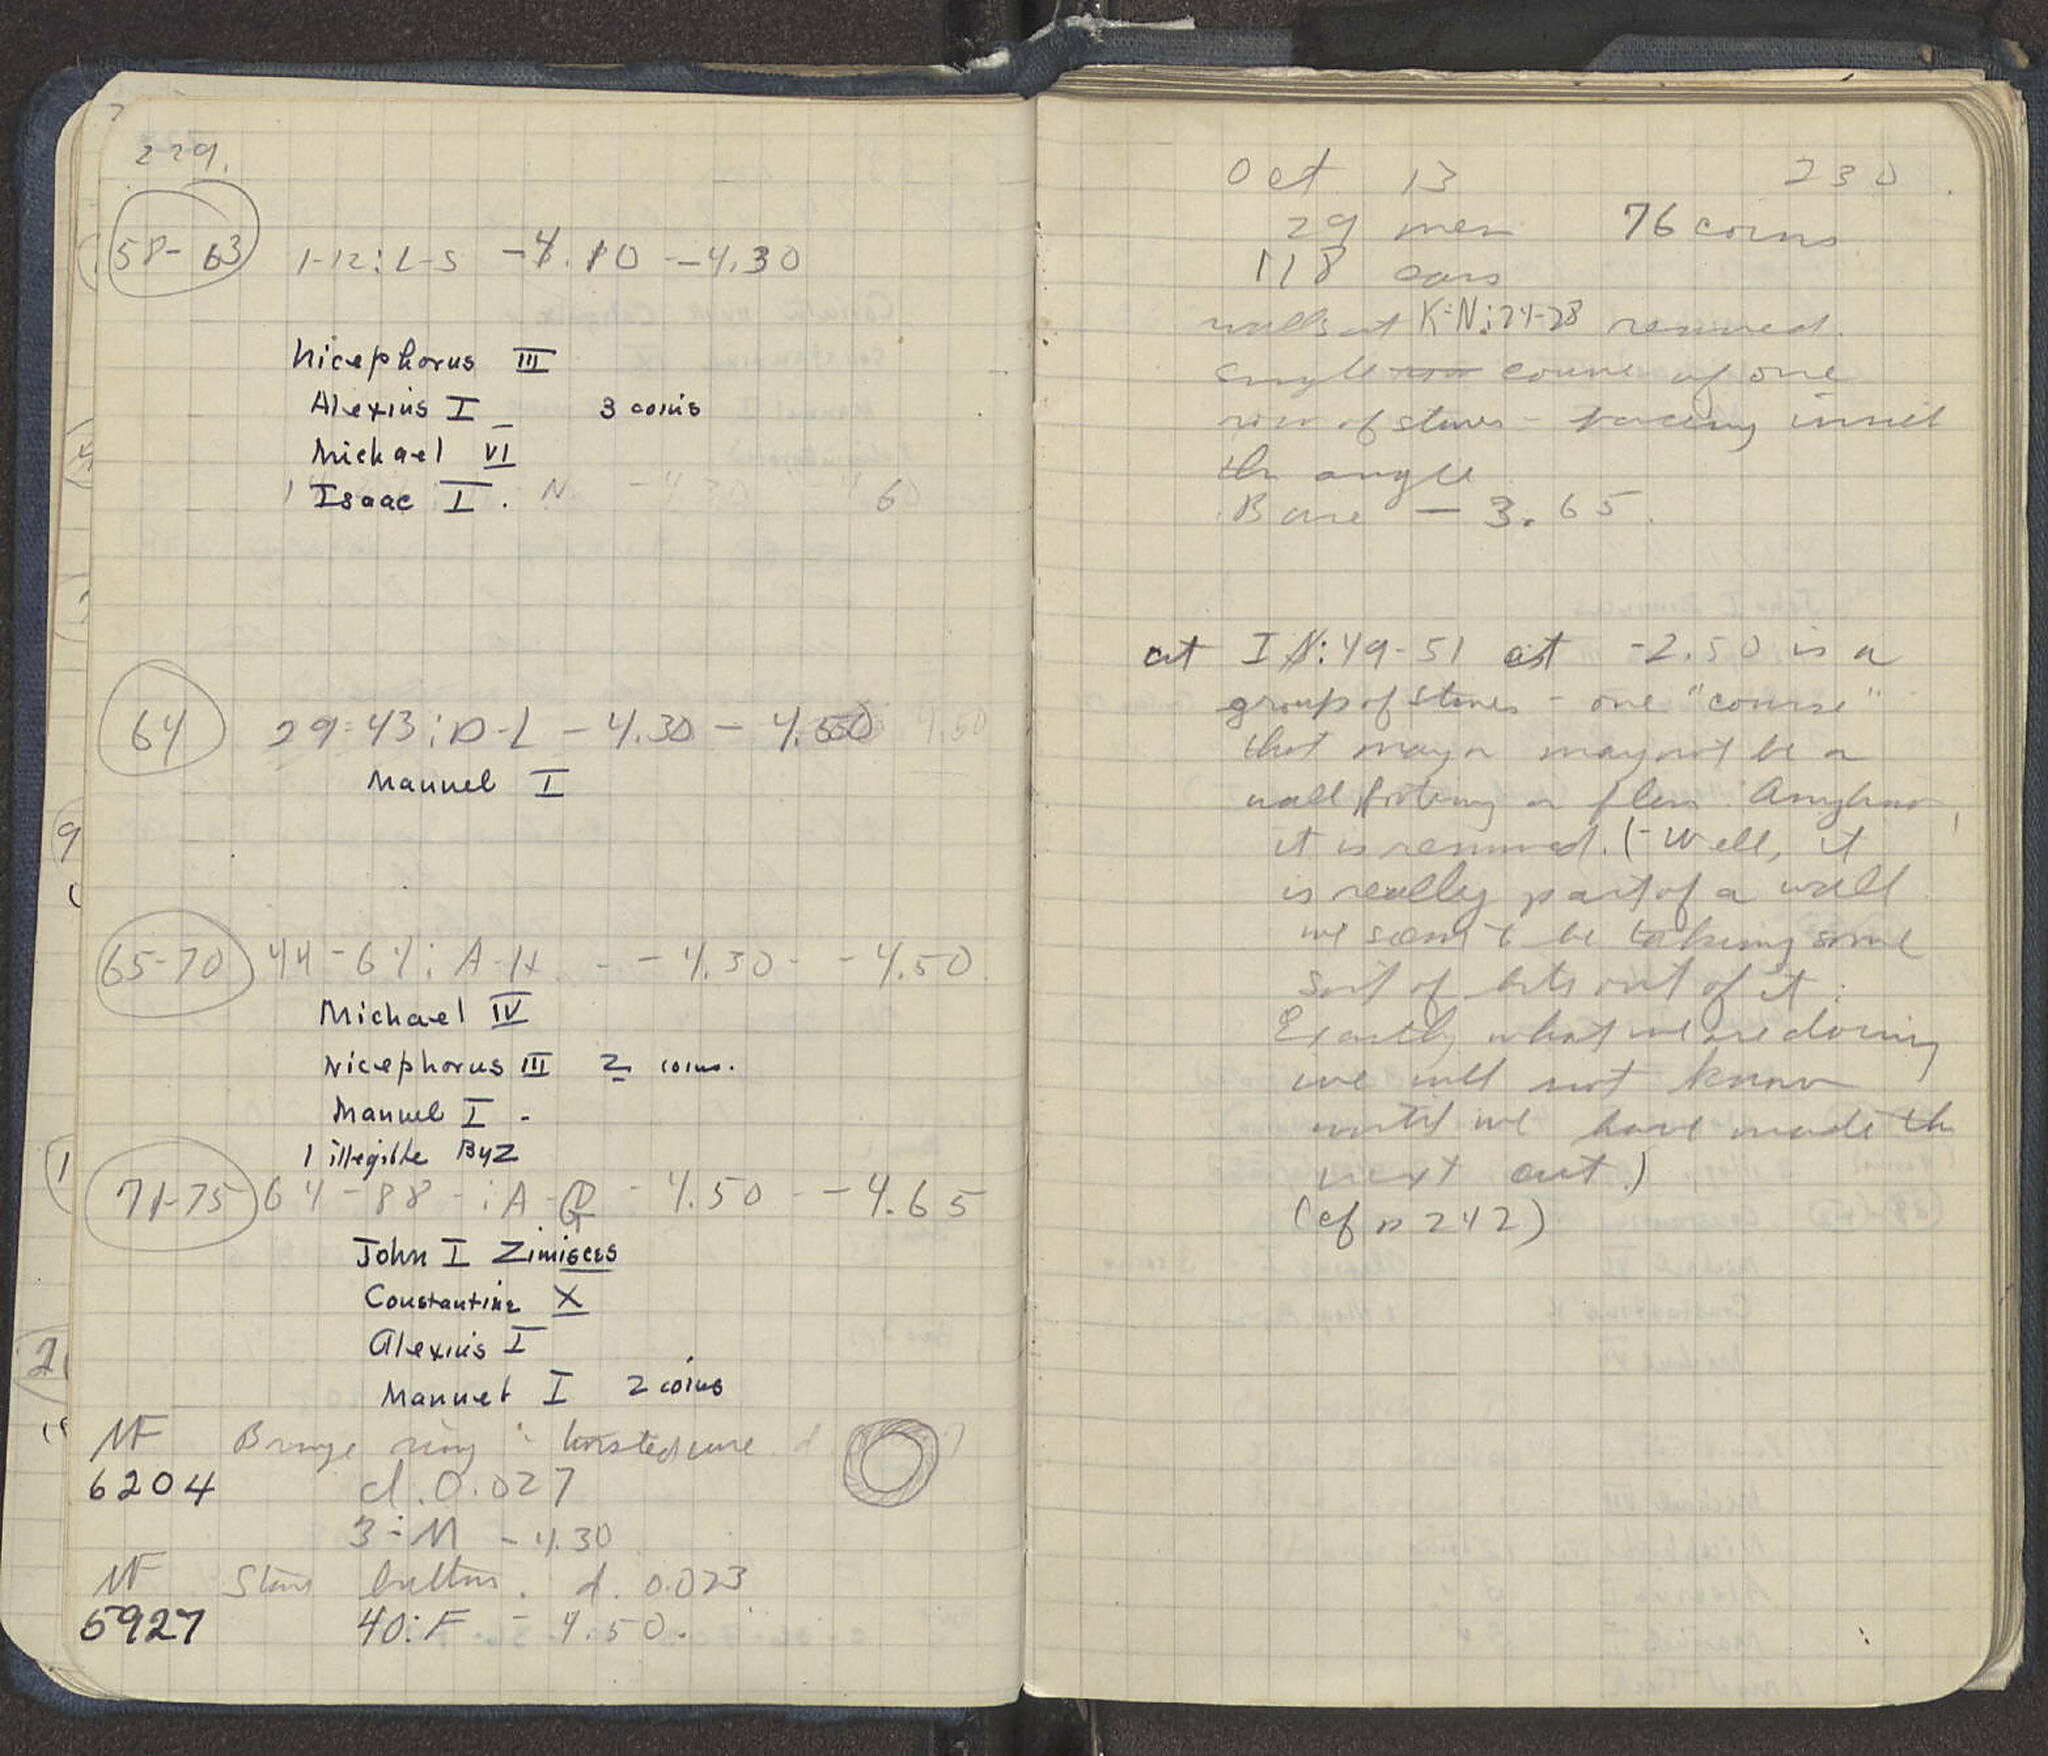 229.
58-63 1-12:L-S -4.10 -4.30
Nicephorus III
Alexius I 3 coins
Michael VI
Isaac I.
64 29-43:D-L -4.30 - 4.50
Manuel I
65-70 44-64:A-H - -4.30 - -4.50
Michael IV
Nicephorus III 2 coins.
Manuel I -
1 illegible Byz
71-75 64-88-:A- - 4.50 - -4.65
John I Zimisces
Constantine X
Alexius I
Manuel I 2 coins
MF Bronze ring: twisted wire
6204 d. 0.027
3:M -4.30
MF Stone button. d. 0.023
5927 40:F - 4.50.
Oct 13 230
29 men 76 coins
118 cars
walls at K-N:24-28 removed.
Single course of one
row of stones - facing inside
the angle
Base - 3.65.
at I:49-51 at -2.50 is a
group of stones - one "course"
that may or may not be a
wall footing or floor. Anyhow,
it is removed. (-Well, it
is really part of a wall
we seem to be taking some
sort of bits out of it:
Exactly what we are doing
we will not know
until we have made the
next cut.)
(cf p 242)